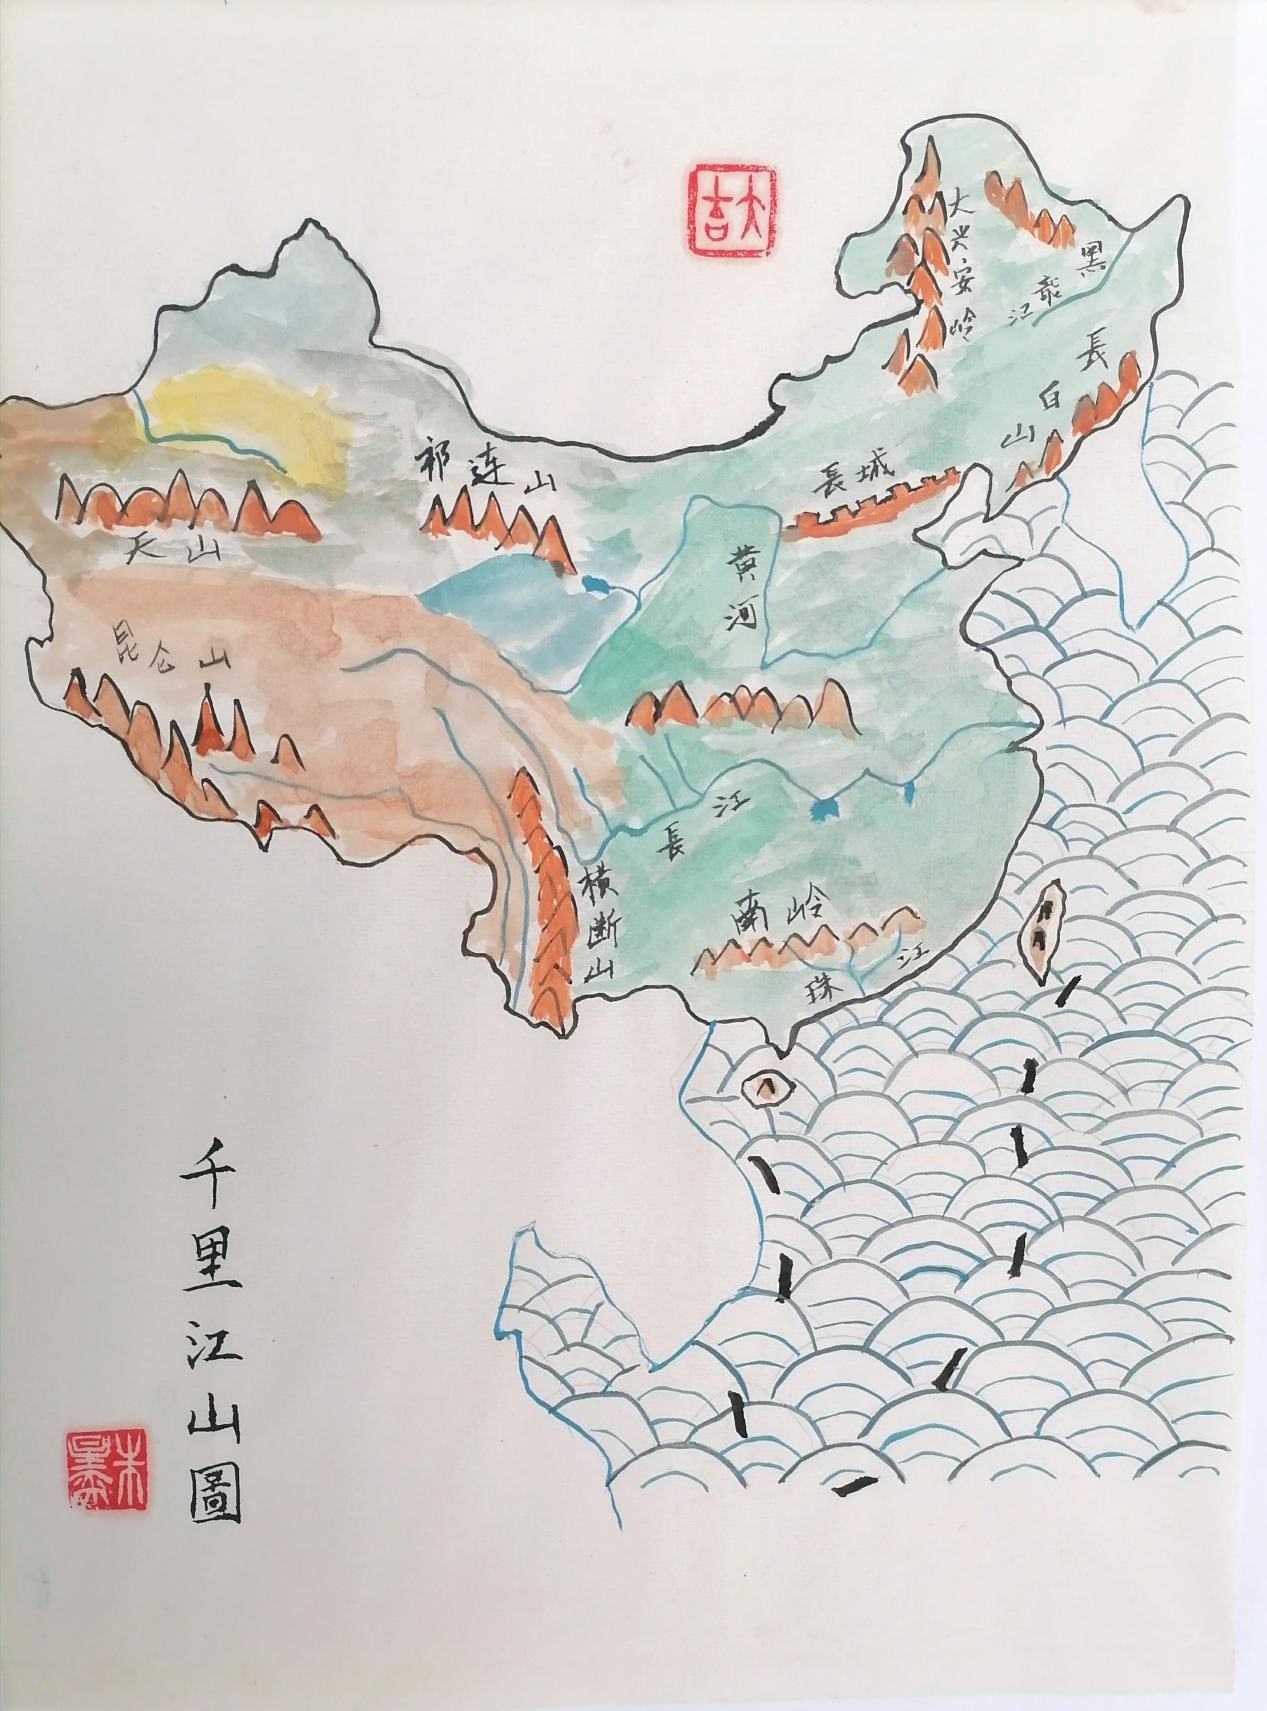 大吉
大兴安岭
黑龍江
長白山
長城
祁连山
天山
黄河
昆仑山
長江
横断山
南岭
珠江
千里江山圖